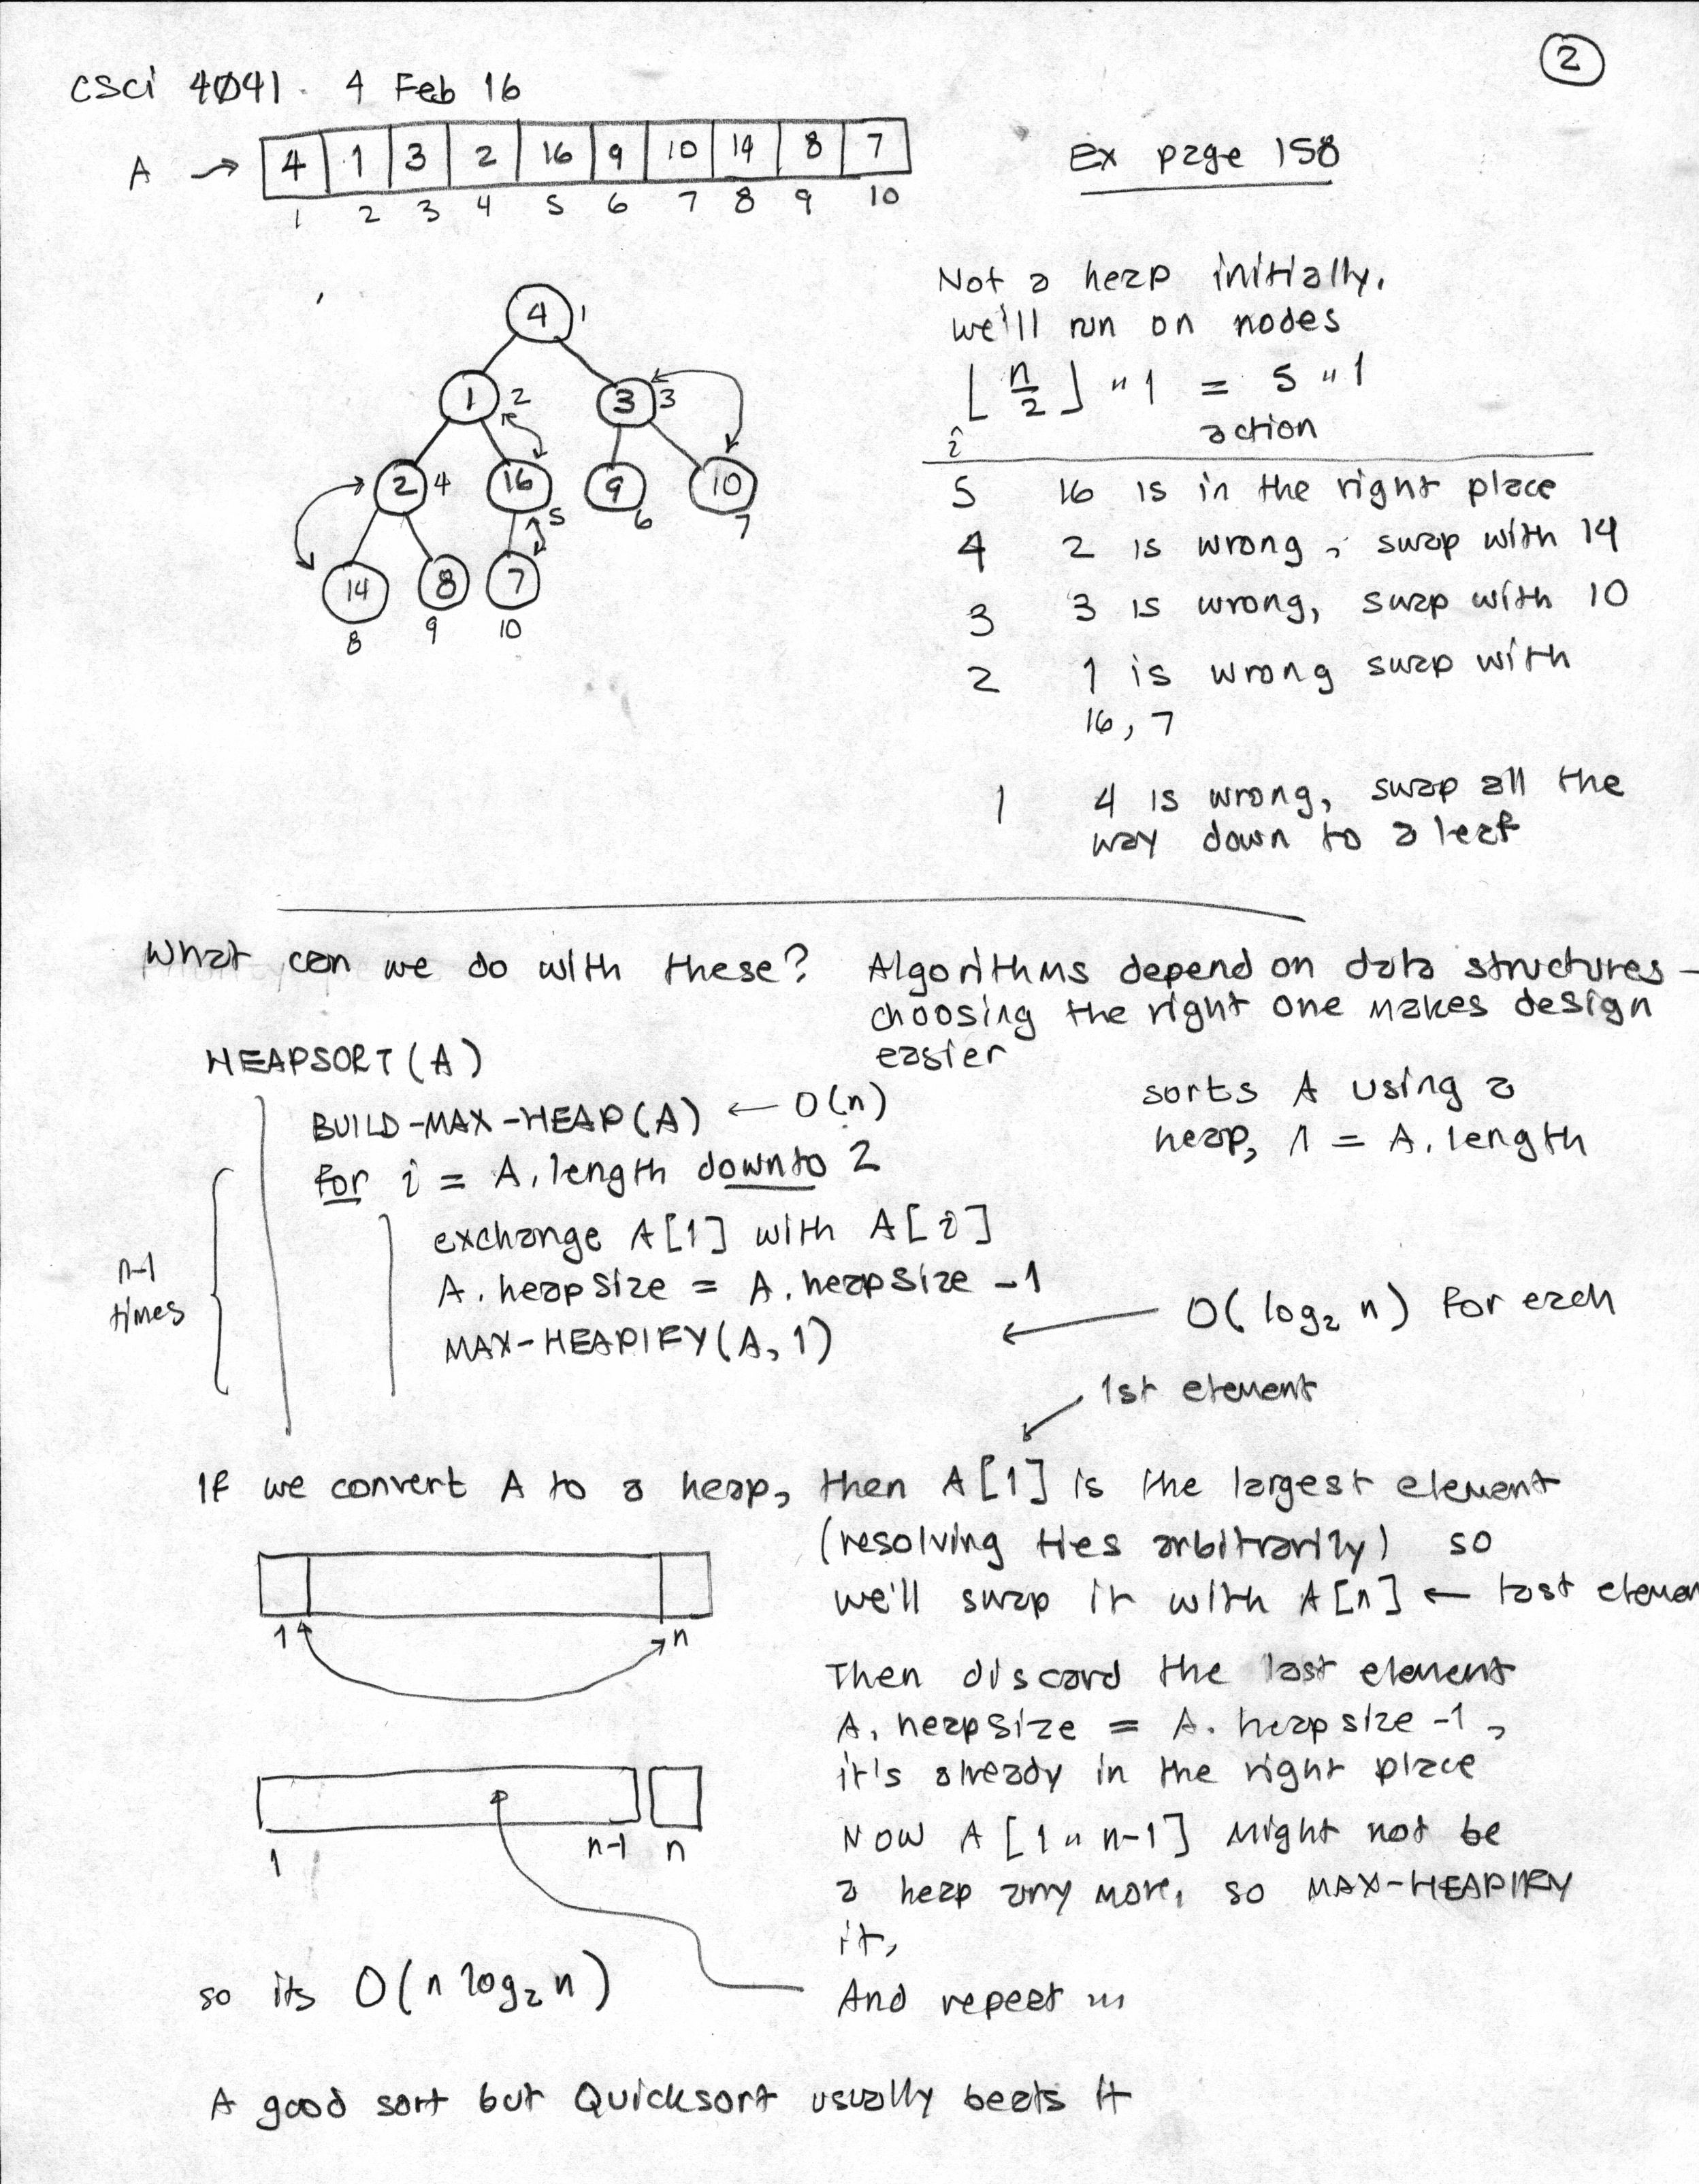 2
CSci 4041. 4 Feb 16
A → 4 1 3 2 16 9 10 14 8 7
1 2 3 4 5 6 7 8 9 10
Ex page 158
4 1
1 2 3 3
2 4 16 5 9 6 10 7
14 8 7
8 9 10
Not a heap initially.
we'll run on nodes
⌊n/2⌋ .. 1 = 5 .. 1
i action
5 16 is in the right place
4 2 is wrong, swap with 14
3 3 is wrong, swap with 10
2 1 is wrong swap with
16, 7
1 4 is wrong, swap all the
way down to a leaf
What can we do with these? Algorithms depend on data structures –
choosing the right one makes design
easier
HEAPSORT(A)
sorts A using a
heap, n = A.length
BUILD-MAX-HEAP(A) ← O(n)
for i = A.length downto 2
exchange A[1] with A[i]
A.heapsize = A.heapsize - 1
MAX-HEAPIFY(A, 1)
n-1
times
← O(log₂ n) for each
1st element
If we convert A to a heap, then A[1] is the largest element
(resolving ties arbitrarily) so
we'll swap it with A[n] ← last elemen
1 n
Then discard the last element
A.heapsize = A.heapsize - 1,
it's already in the right place
1 n-1 n
Now A[1 .. n-1] might not be
a heap any more, so MAX-HEAPIFY
it,
And repeat ...
so its O(n log₂ n)
A good sort but Quicksort usually beats it